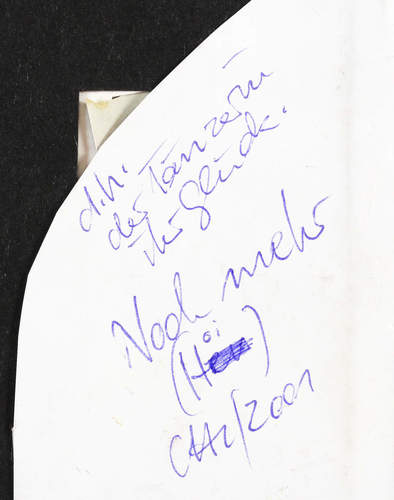 d.h.
der Tänzerin
ihr Glück.
Noch mehr
(Höi)
/2001